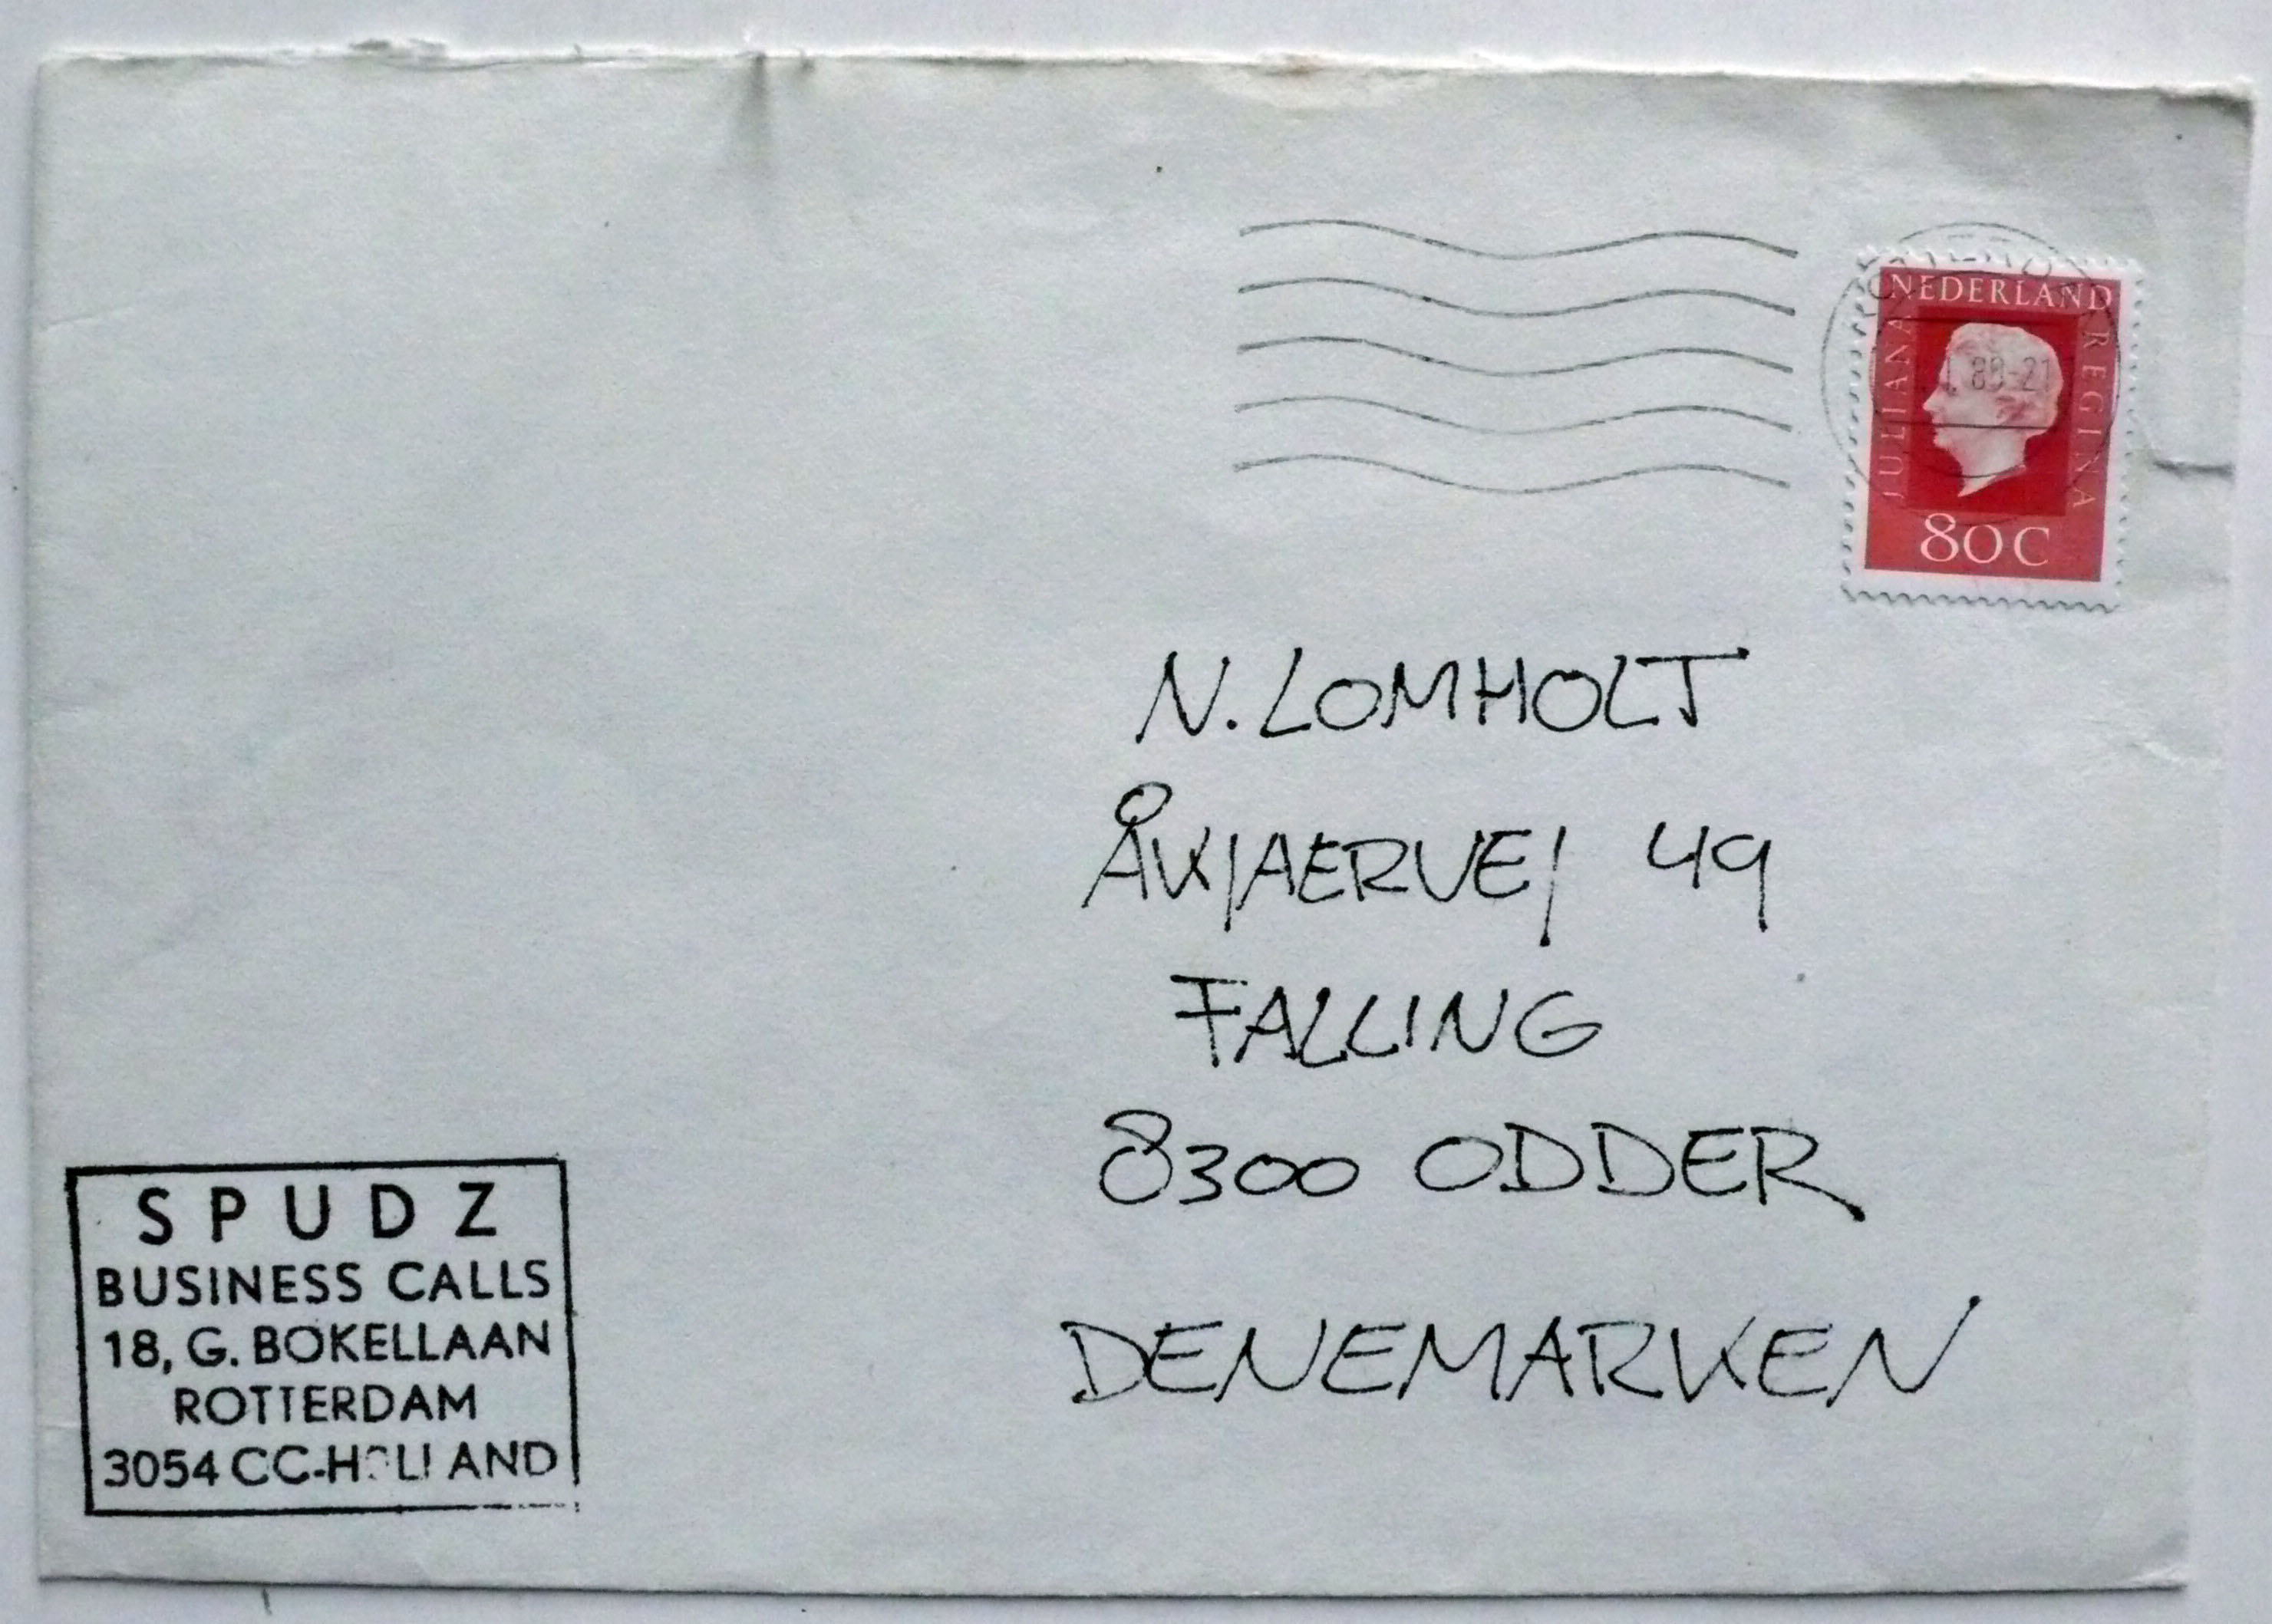 NEDERLAND
JULIANA
REGINA
80C
N. LOMHOLT
ÅKJAERVEJ 49
FALLING
8300 ODDER
DENEMARKEN
SPUDZ
BUSINESS CALLS
18, G. BOKELLAAN
ROTTERDAM
3054 CC-HOLLAND